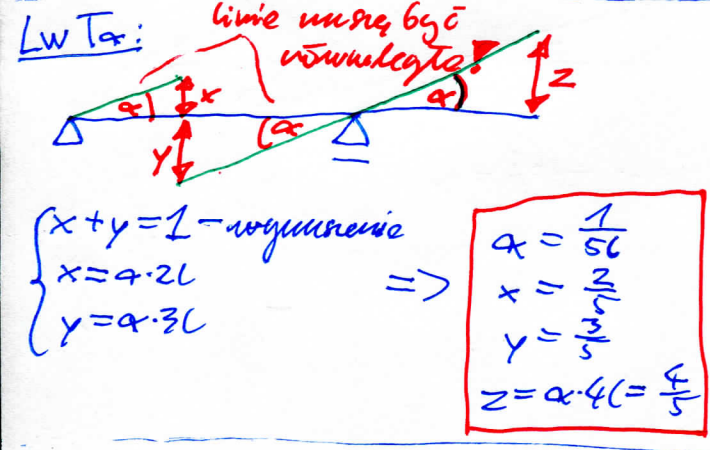 Lw Tα:
linie muszą być
równoległe!
α
x
α
α
z
y
x + y = 1 - wymuszenie
x = α·2l
y = α·3l
=>
α = 1/5l
x = 2/5
y = 3/5
z = α·4l = 4/5